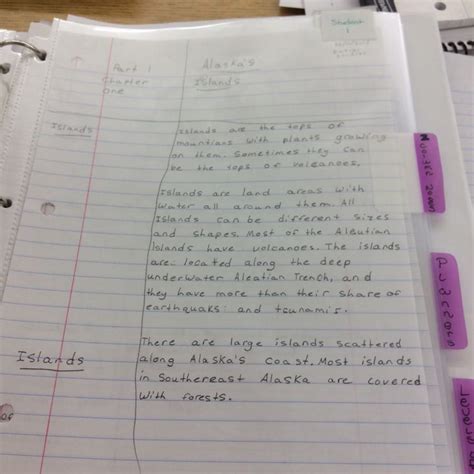 Student
1
Part 1
Alaska's
Charter
Islands
one
Islands
Islands are the tops of
mountians with plants growing
on them. Sometimes they can
be the tops of volcanoes.
Islands are land areas with
water all around them. All
Islands can be different sizes
and shapes. Most of the Aleutian
Islands have volcanoes. The islands
are located along the deep
underwater Aleatian Trench, and
they have more than their share of
earthquaks and tsunami's.
Islands
There are large islands scattered
along Alaska's coast. Most islands
in Southereast Alaska are covered
with forests.